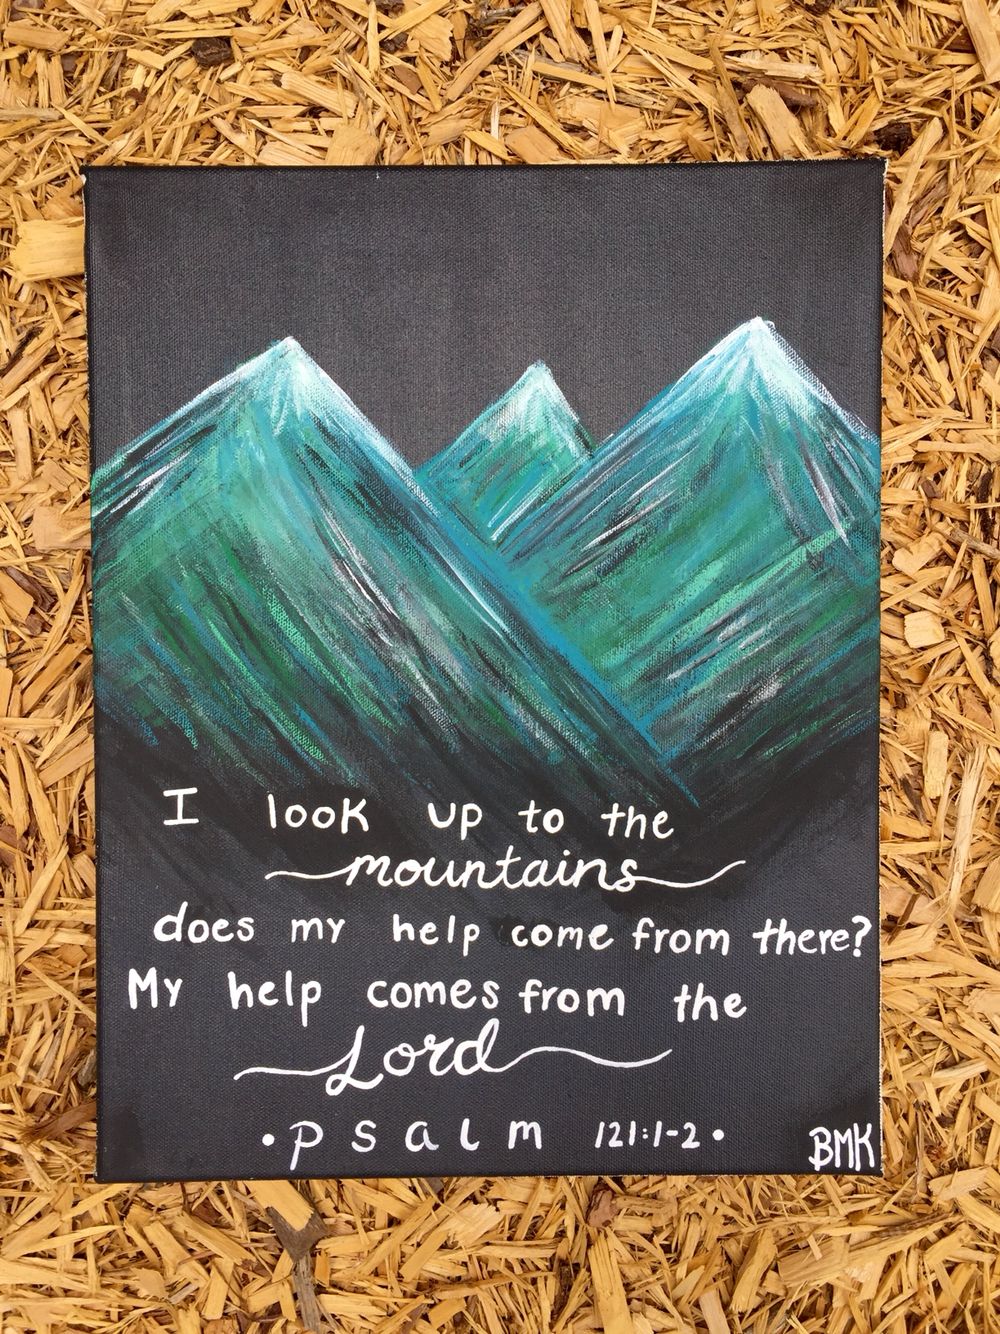 I look up to the
mountains
does my help come from there?
My help comes from the
Lord
• psalm 121:1-2 •
BMK